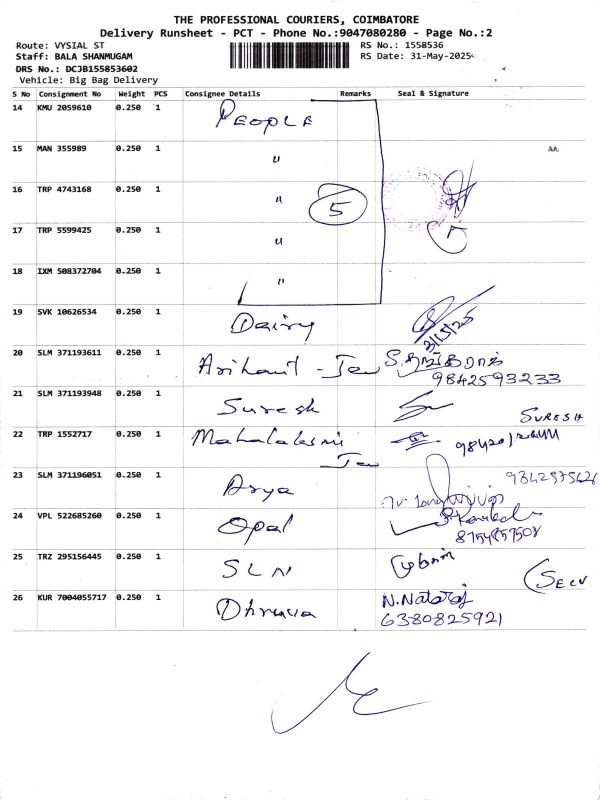 THE PROFESSIONAL COURIERS, COIMBATORE
Delivery Runsheet - PCT - Phone No.:9047080280 - Page No.:2
Route: VYSIAL ST RS No.: 1558536
Staff: BALA SHANMUGAM RS Date: 31-May-2025
DRS No.: DCJB155853602
Vehicle: Big Bag Delivery
S No Consignment No Weight PCS Consignee Details Remarks Seal & Signature
14 KMU 2059610 0.250 1 PEOPLE
15 MAN 355989 0.250 1 " AA
16 TRP 4743168 0.250 1 " 5
17 TRP 5599425 0.250 1 " 5
18 IXM 508372704 0.250 1 "
19 SVK 10626534 0.250 1 Dairy 31/5/25
20 SLM 371193611 0.250 1 Arihant - Jew
9842593233
21 SLM 371193948 0.250 1 Suresh SURESH
22 TRP 1552717 0.250 1 Mahalakshmi
Jew
23 SLM 371196051 0.250 1 Arya
24 VPL 522685260 0.250 1 Opal
25 TRZ 295156445 0.250 1 SLN SELV
26 KUR 7004055717 0.250 1 Dhruva N.Nataraj
6380825921